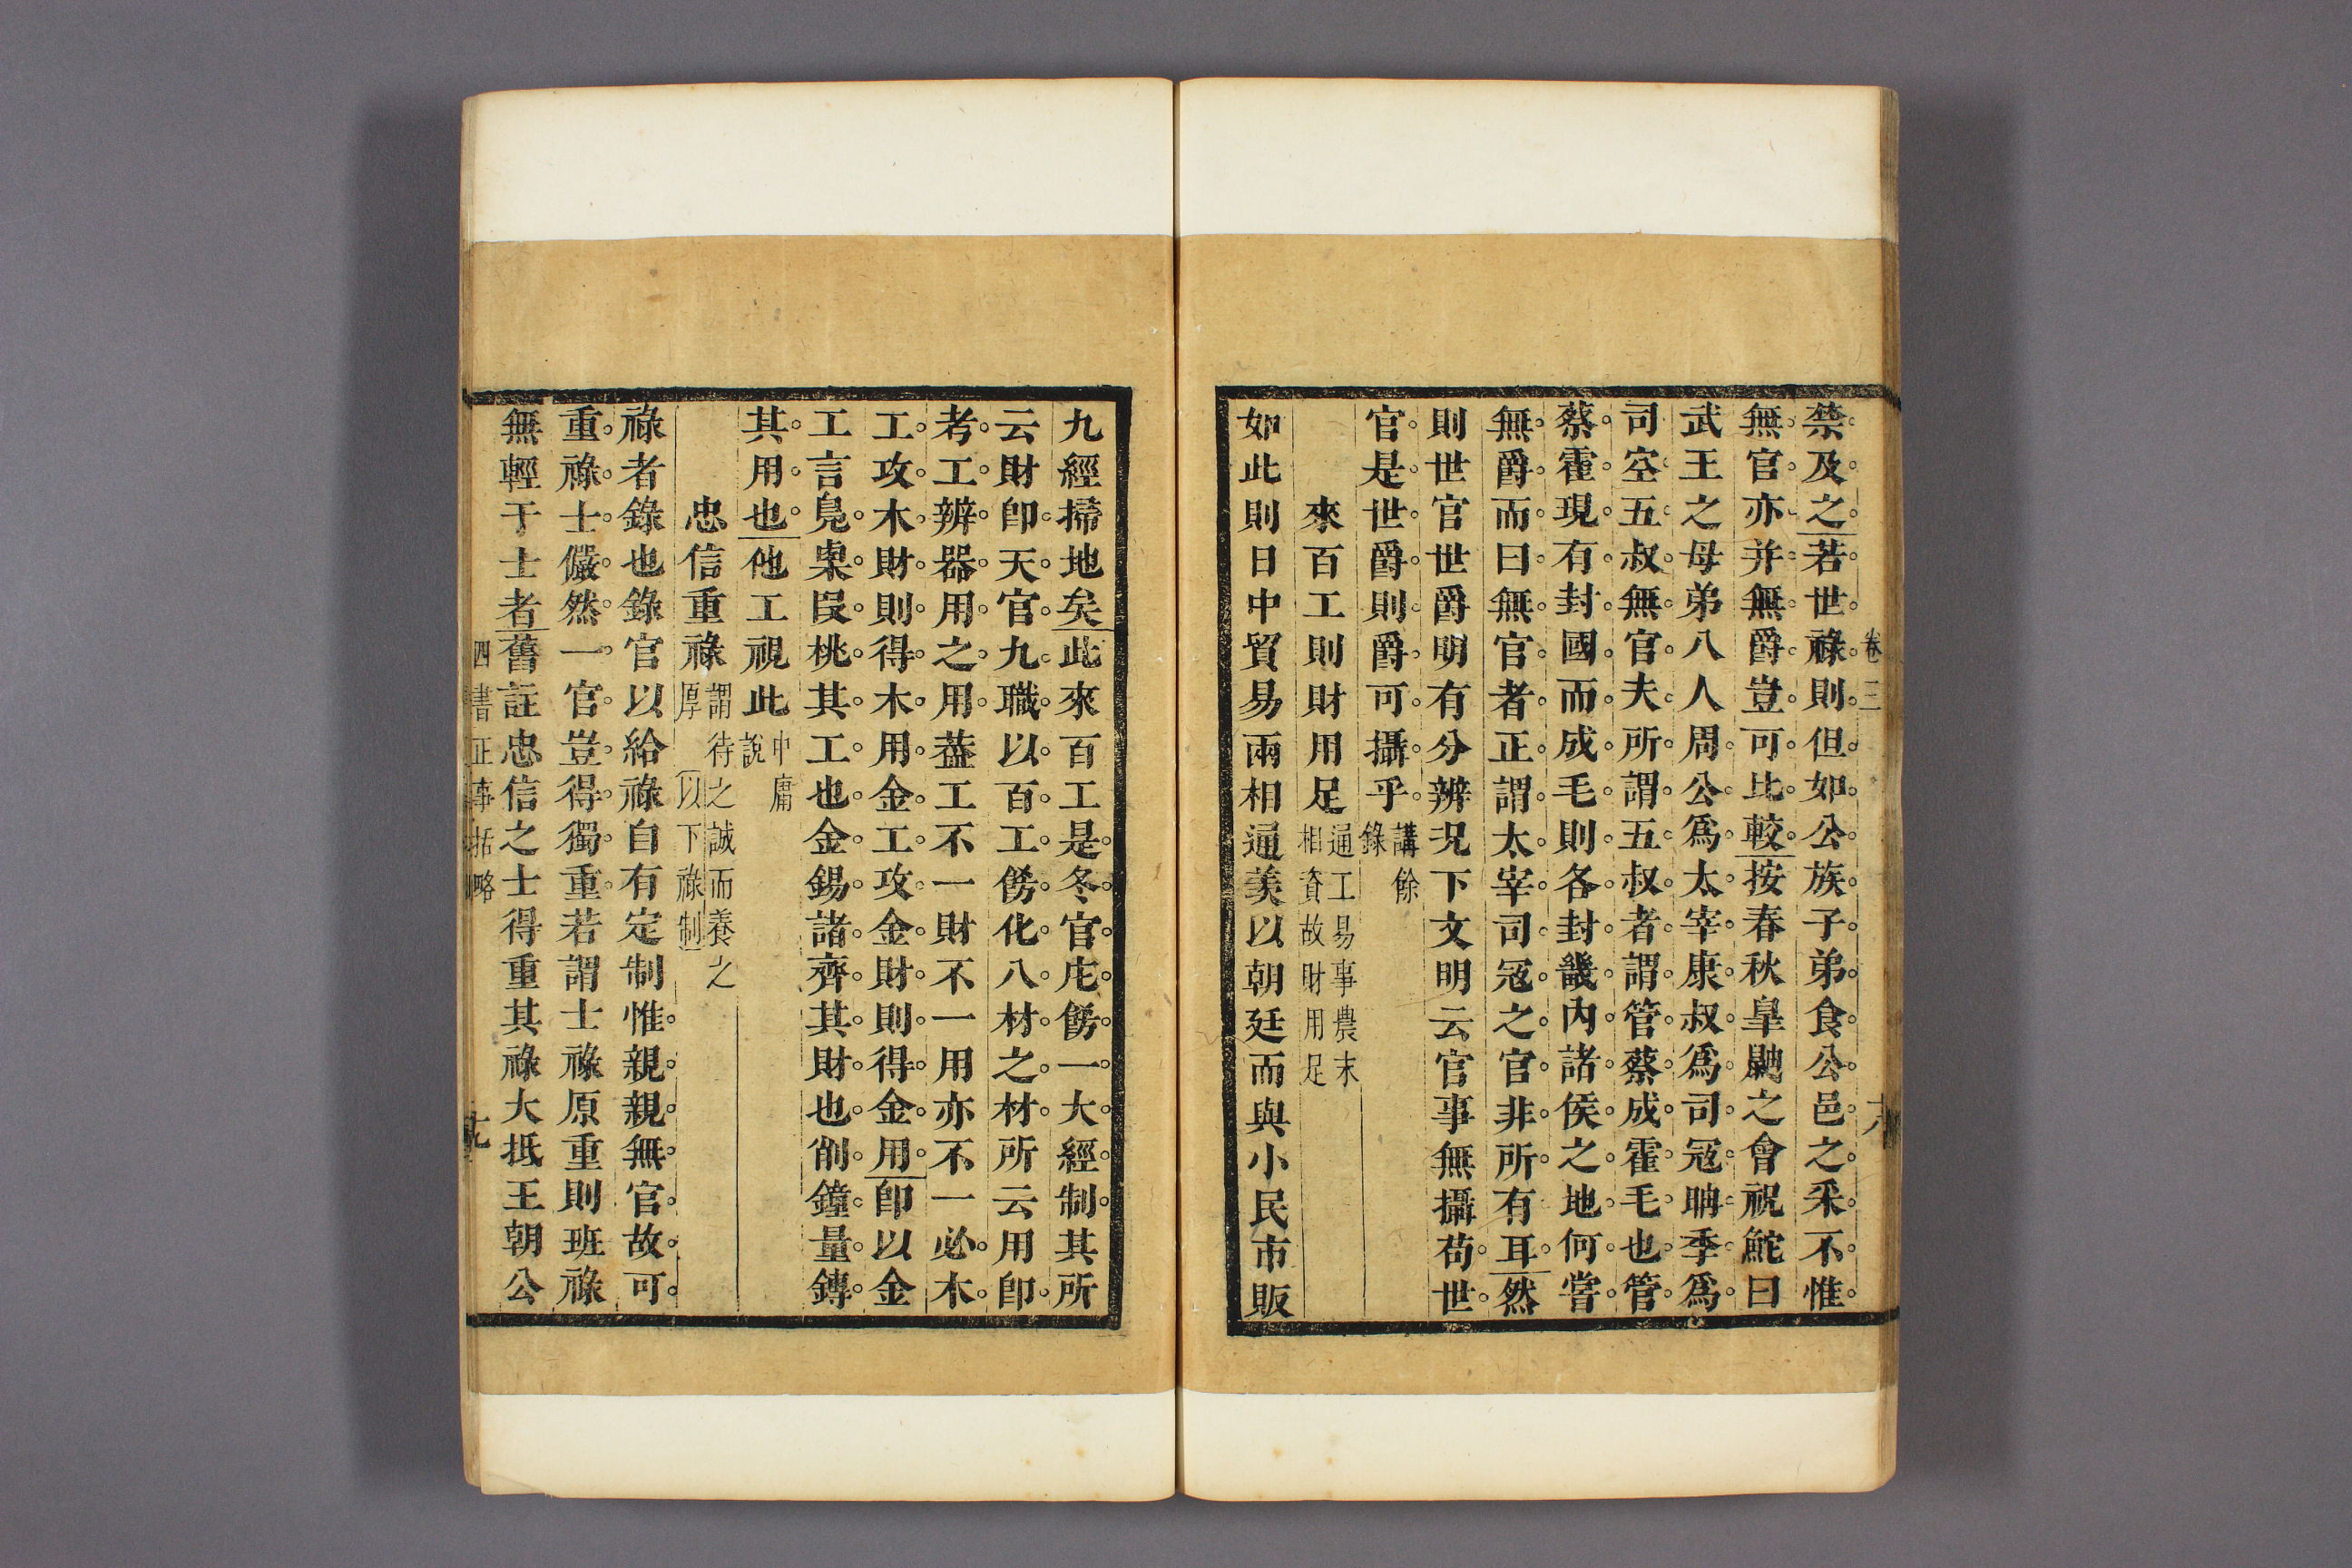 卷三
十八
禁及之若世祿則但如公族子弟食公邑之采不惟
無官亦并無爵豈可比較按春秋臯鼬之會祝鮀曰
武王之母弟八人周公爲太宰康叔爲司寇聃季爲
司空五叔無官夫所謂五叔者謂管蔡成霍毛也管
蔡霍現有封國而成毛則各封畿內諸侯之地何嘗
無爵而曰無官者正謂太宰司寇之官非所有耳然
則世官世爵明有分辨况下文明云官事無攝苟世
官是世爵則爵可攝乎講餘錄
來百工則財用足通工易事農末相資故財用足
如此則日中貿易兩相通羨以朝廷而與小民市販
九經掃地矣此來百工是冬官庀飭一大經制其所
云財卽天官九職以百工飭化八材之材所云用卽
考工辨器用之用葢工不一財不一用亦不一必木
工攻木財則得木用金工攻金財則得金用卽以金
工言鳧㮚段桃其工也金錫諸齊其財也削鐘量鎛
其用也他工視此中庸說
忠信重祿謂待之誠而養之厚 以下祿制
祿者錄也錄官以給祿自有定制惟親親無官故可
重祿士儼然一官豈得獨重若謂士祿原重則班祿
無輕于士者舊註忠信之士得重其祿大抵王朝公
四書正事括略
十九